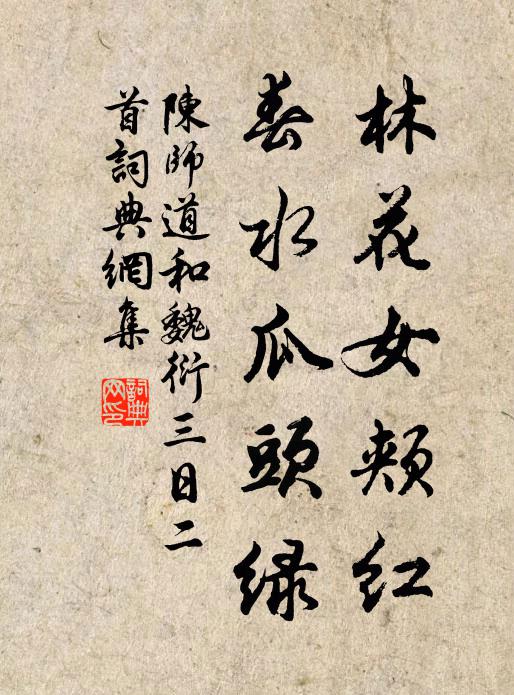 林花女頰紅
春水瓜頭綠
陳師道和魏衍三日二
首詞典網集
詞典网印